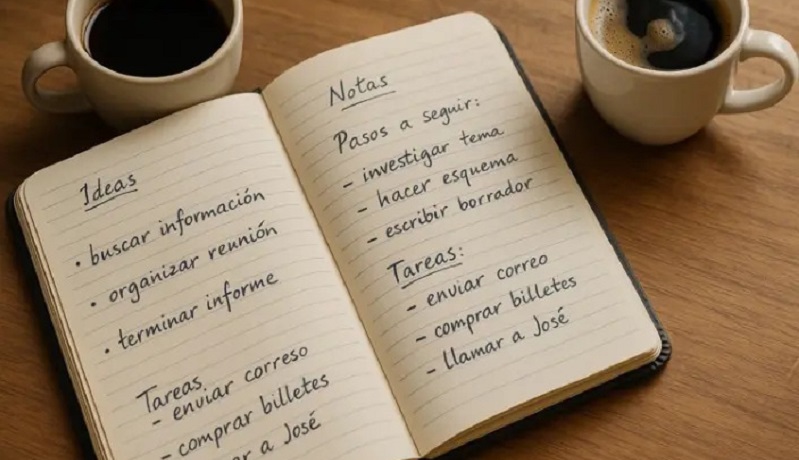 Ideas
• buscar información
• organizar reunión
• terminar informe
Tareas
- enviar correso
- comprar billetes
ar a José
Notas
Pasos a seguir:
- investigar tema
- hacer esquema
- escribir borrador
Tareas:
- enviar correo
- comprar billetes
- llamar a José